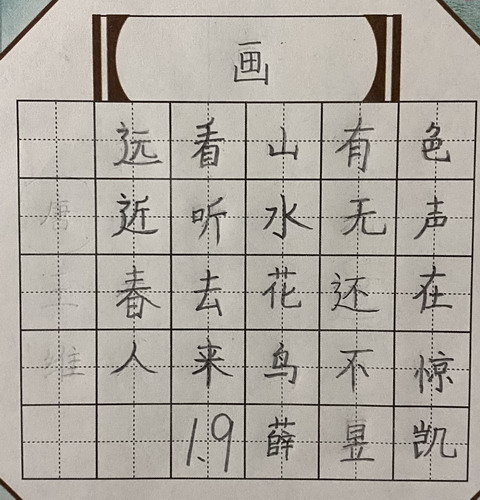 画
远看山有色
唐近听水无声
王春去花还在
维人来鸟不惊
1.9薛昱凯